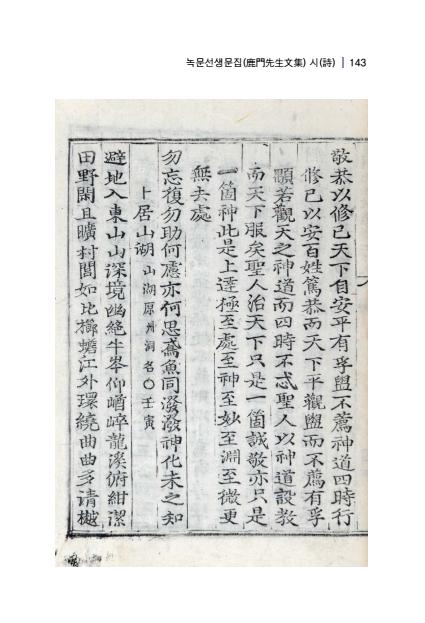 녹문선생문집(鹿門先生文集) 시(詩) | 143
敬恭以修己天下自安平有孚盥不薦神道四時行
修己以安百姓篤恭而天下平觀盥而不薦有孚
顒若觀天之神道而四時不忒聖人以神道設教
而天下服矣聖人治天下只是一箇誠敬亦只是
一箇神此是上達極至處至神至妙至淵至微更
無去處
勿忘復勿助何慮亦何思鳶魚同潑潑神化未之知
卜居山湖 山湖原州洞名○壬寅
避地入東山山深境幽絶牛岑仰崷崪龍溪俯紺潔
田野閒且曠村閭如比櫛蟾江外環繞曲曲多清樾